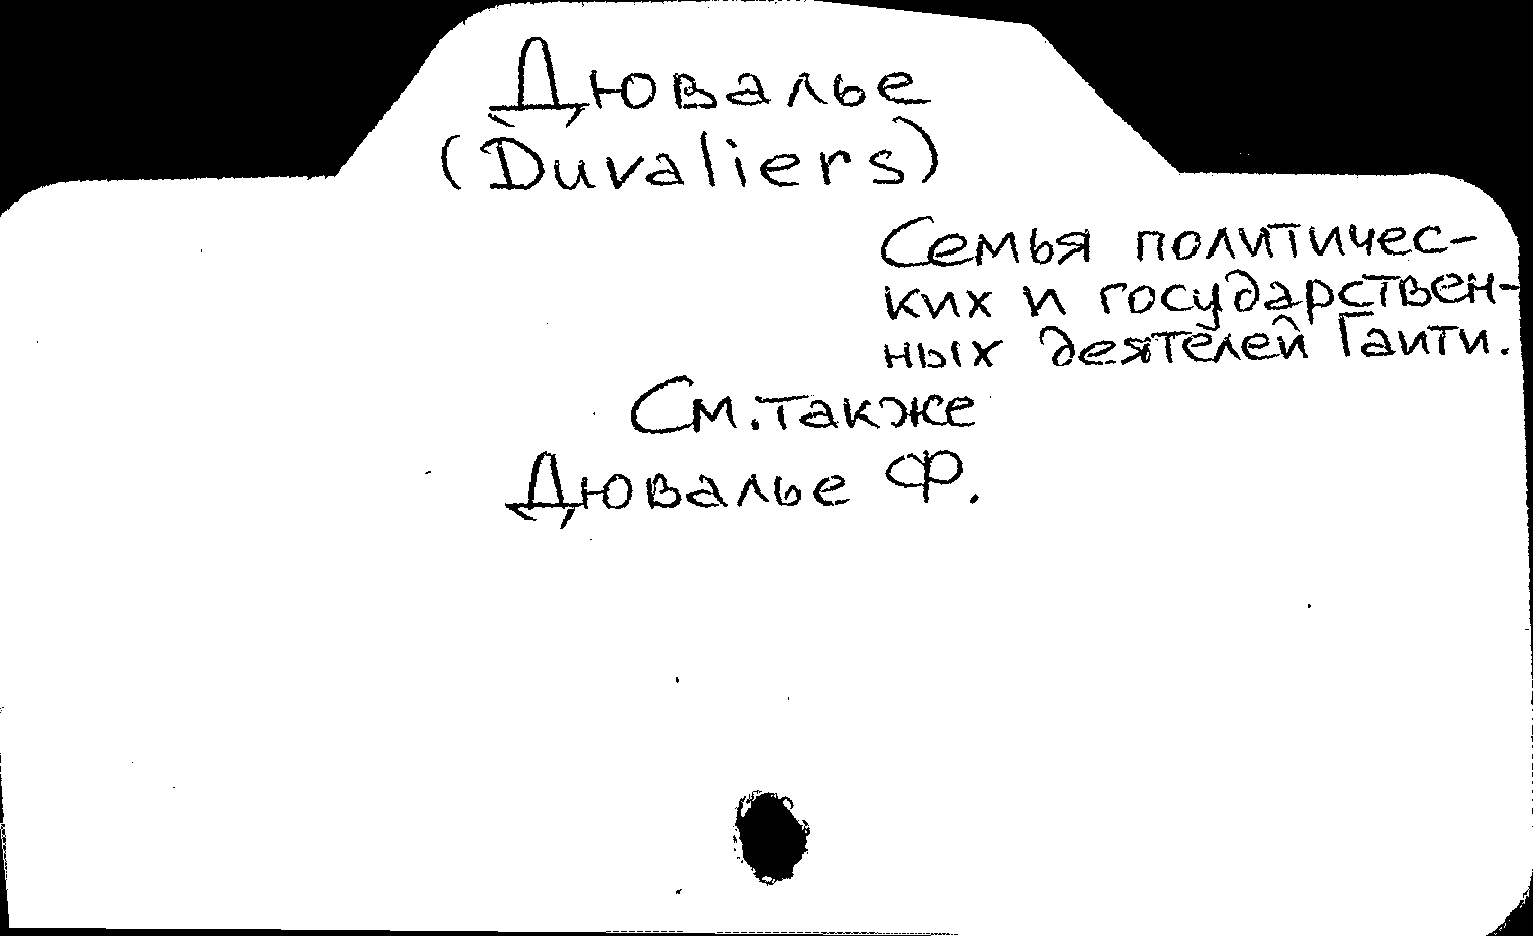 Дювалье
(Duvaliers)
Семья политичес-
ких и государствен-
ных деятелей Гаити.
См. также
Дювалье Ф.